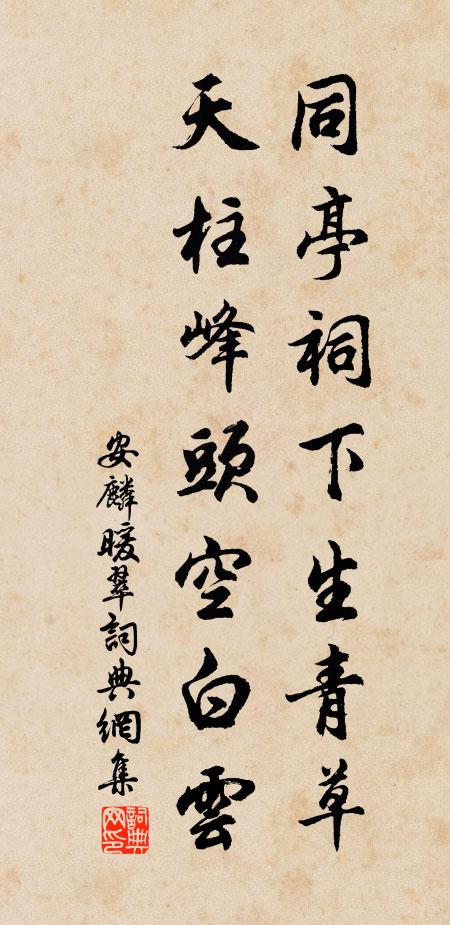 同亭祠下生青草
天柱峰頭空白雲
安麟暖翠詞典網集
詞典網印